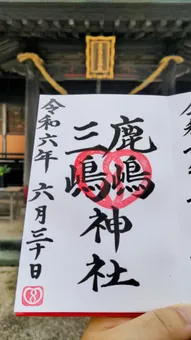 鹿嶋
三嶋
神社
令和六年 六月三十日